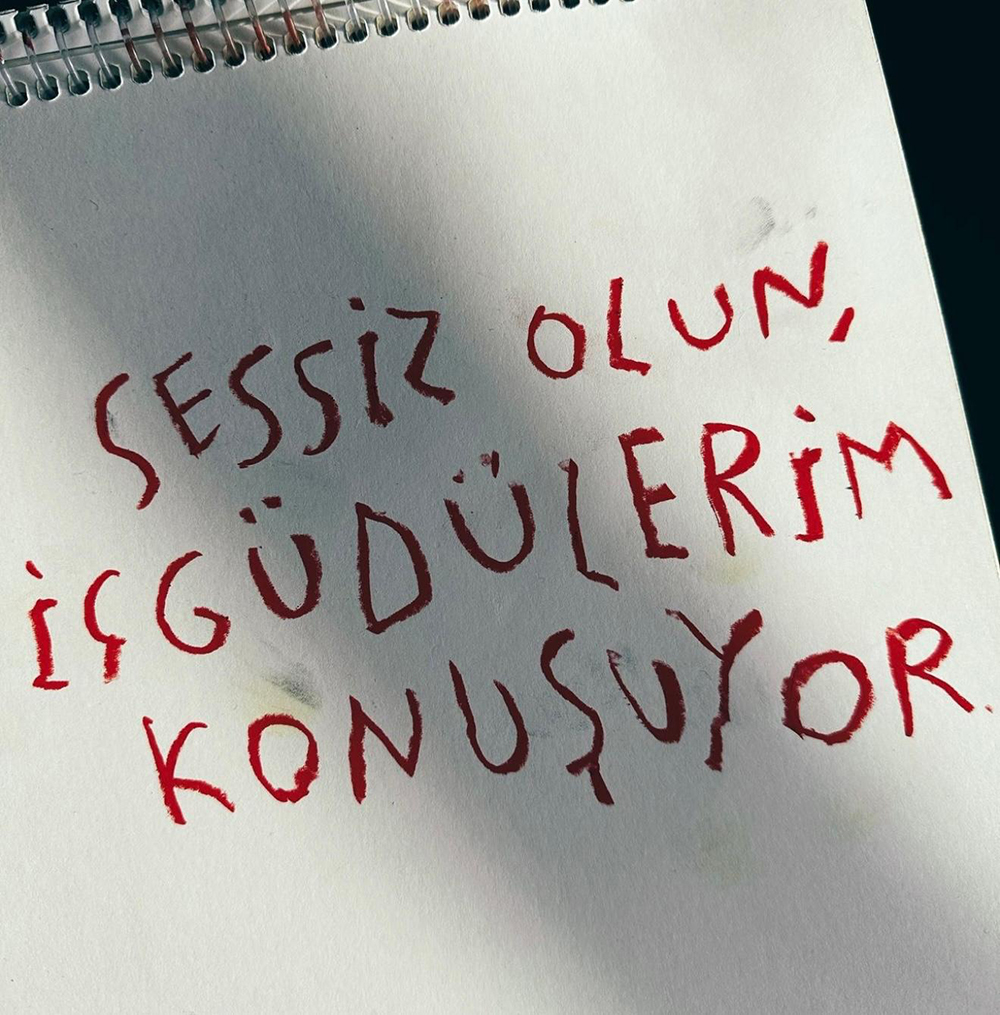 SESSİZ OLUN,
İÇGÜDÜLERİM
KONUŞUYOR.